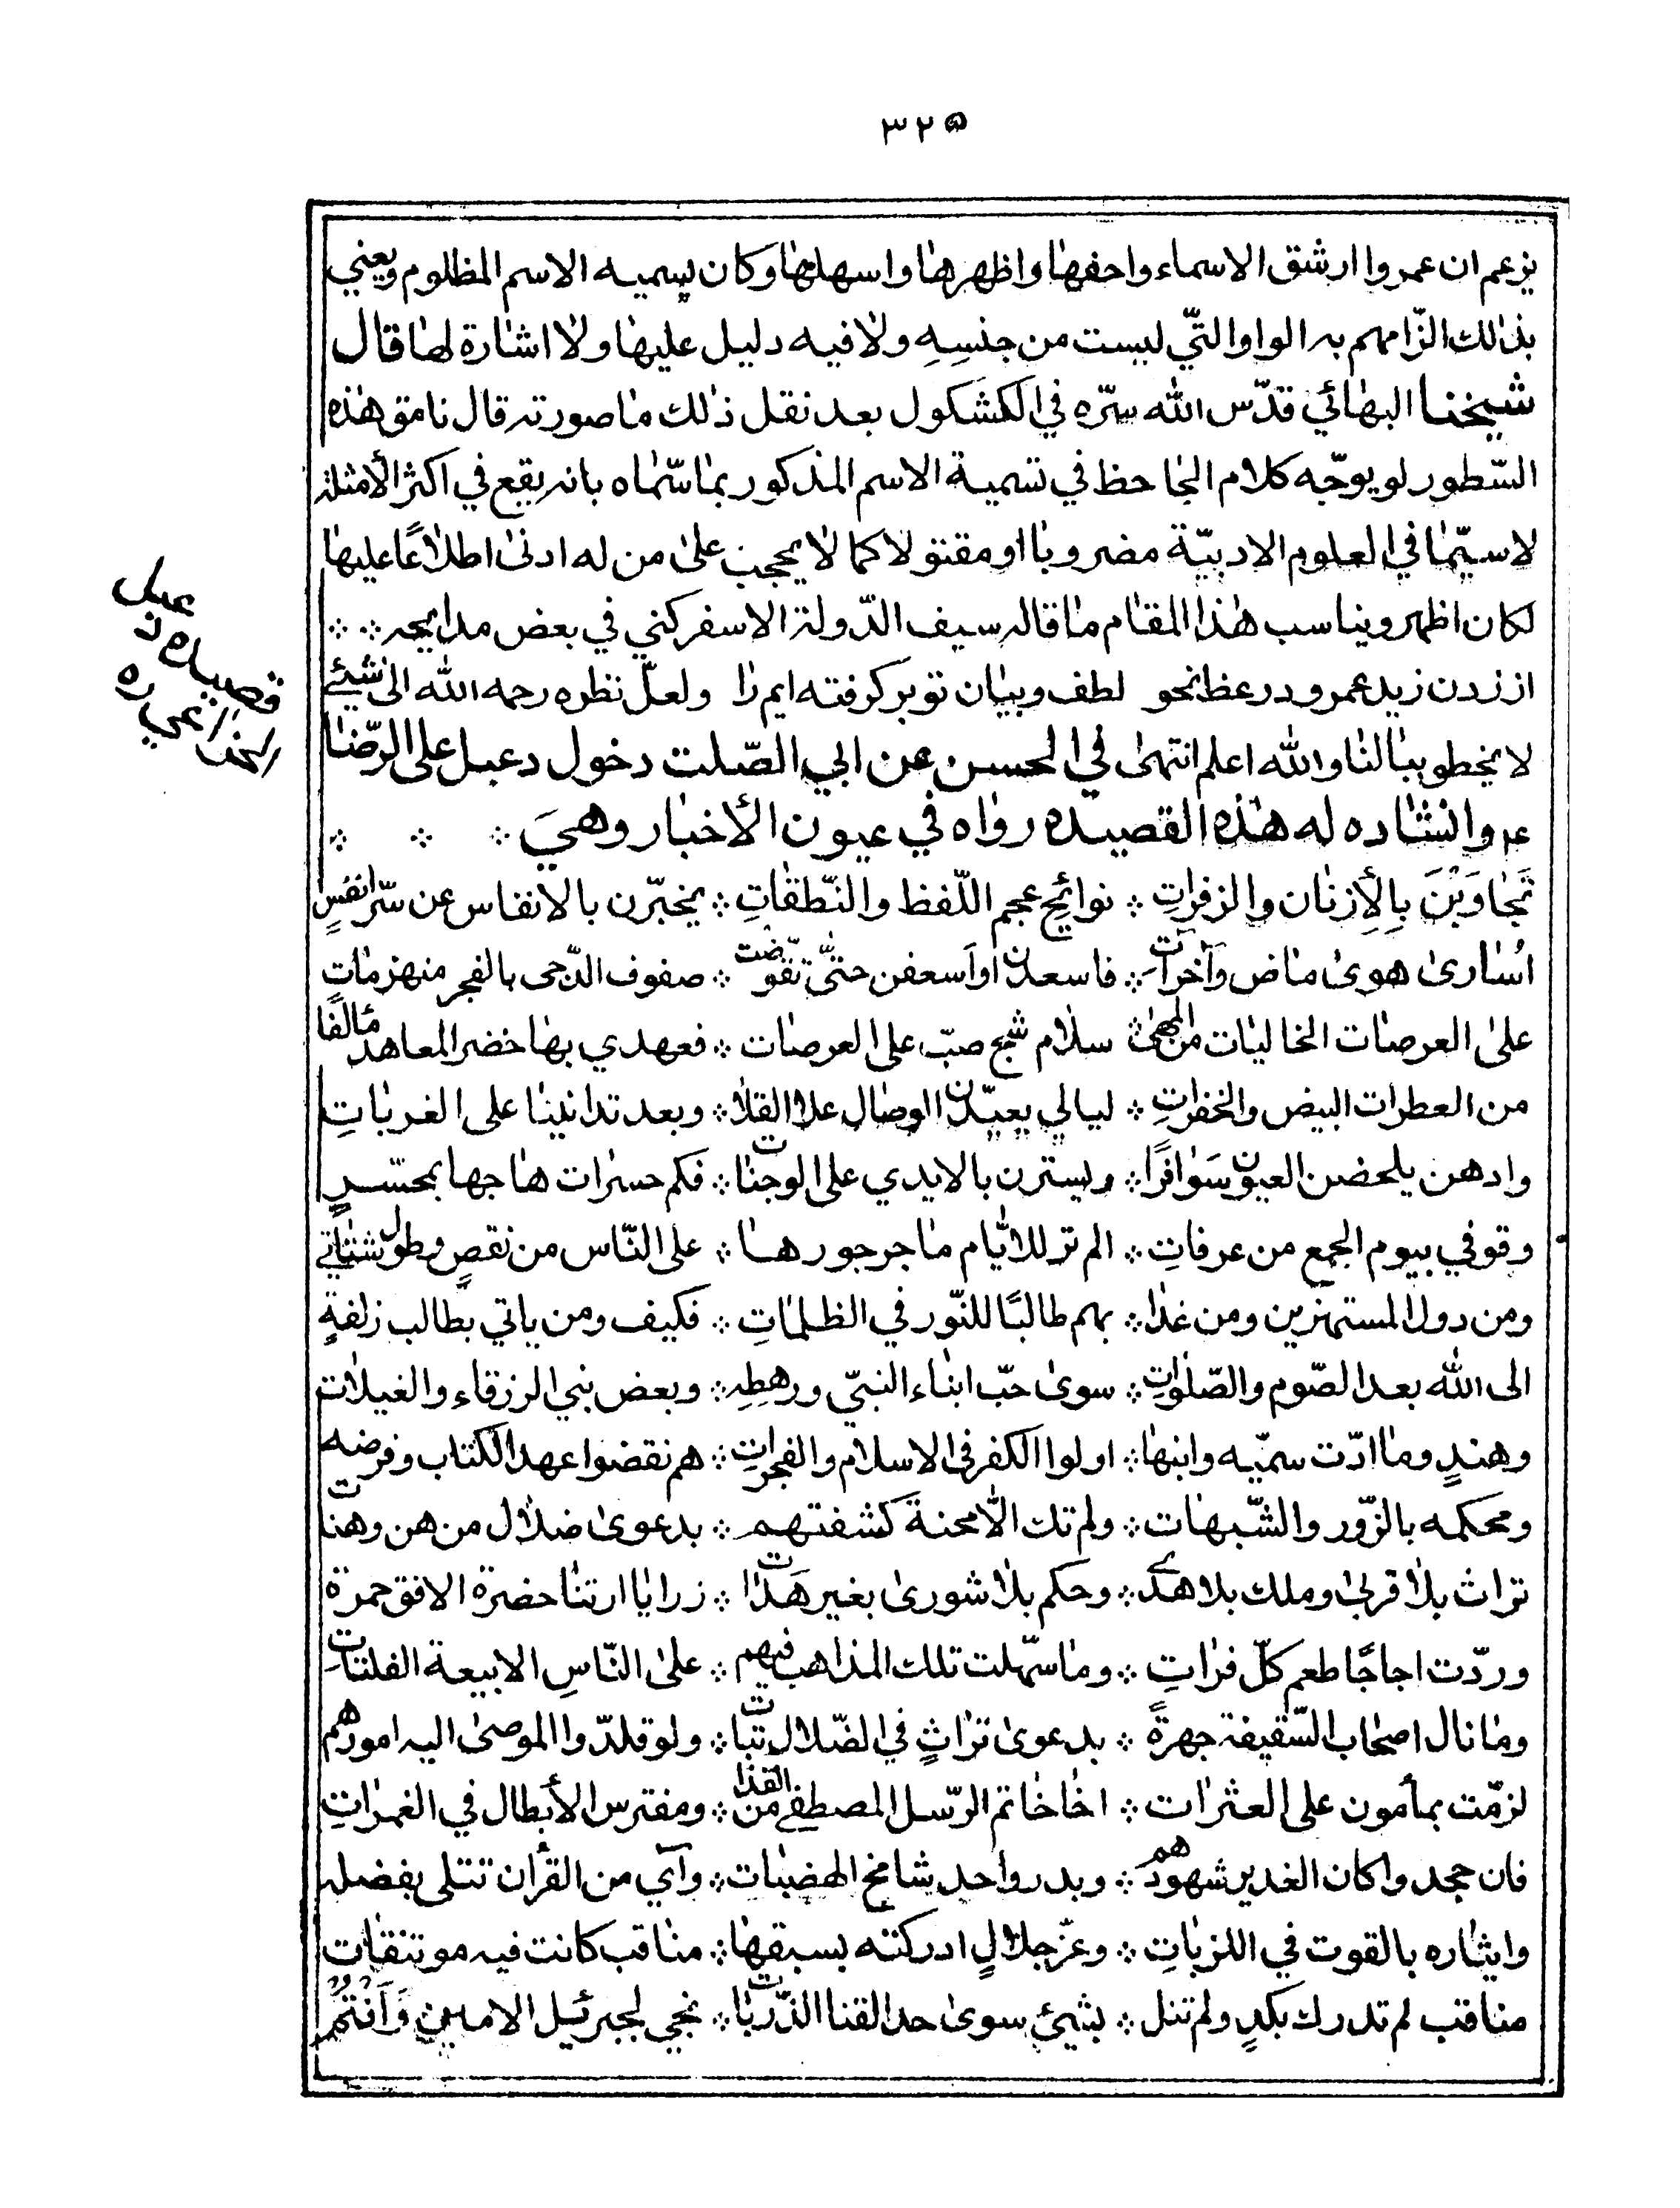 ٣٢٥
يزعم ان عمروا ارشق الاسماء واحفها واظهرها واسهلها وكان يسميه الاسم المظلوم ويعني
بذلك الزامهم به الواو التّي ليست من جنسِهِ ولا فيه دليل عليها ولا اشارة لها قال
شيخنا البهائي قدّس الله سرّه في الكشكول بعد نقل ذلك ما صورته قال نامق هذه
السّطور لو يوجّه كلام الجاحظ في تسمية الاسم المذكور بما سّماه بانه يقع في اكثر الأمثلة
لا سيّما في العلوم الادبيّة مضروبا او مقتولا كما لا يحجب على من له ادنى اطلاعًا عليها
لكان اظهر ويناسب هذا المقام ما قاله سيف الدّولة الاسفركني في بعض مدايحه ؞ ؞
از زدن زيد عمرو در عظ نحو لطف وبيان تو بر كرفته ايم را ولعلّ نظره رحمه الله الى شئ
لا يخطو ببالنا والله اعلم انتهى في الحسن عن ابي الصّلت دخول دعبل على الرّضا
ع وانشاده له هذه القصيده رواه في عيون الأخبار وهيَ ؞ ؞ ؞
تَجاوَبْنَ بِالأِزنان والزفراتِ ؞ نوائح عجم اللّفظ والنّطقاتِ ؞ يخبّرن بالانفاس عن سّر انفسٍ
اُسارى هوى ماض وآخرات ؞ فاسعدن او اسعفن حتّى تقّوضت ؞ صفوف الدّجى بالفجر منهزمات
على العرصات الخاليات من المهى ؞ سلام شج صبّ على العرصات ؞ فعهدي بها خضر المعاهد مألفًا
من العطرات البيض والخفراتِ ؞ ليالي يعيدّن الوصال علا القلا ؞ وبعد تدانينا على الغرباتِ
واد هن يلحضن العيون سَوافرًا ؞ ويسترن بالايدي على الوجنات ؞ فكم حسرات هاجها بمحسّرٍ
وقوفي بيوم الجمع من عرفاتِ ؞ الم تر للايّام ما جر جورها ؞ على النّاس من نقصٍ وطول شتاتِ
ومن دول المستهزين ومن غدا ؞ بهم طالبًا للنّور في الظلماتِ ؞ فكيف ومن ياتي بطالب زلفةٍ
الى الله بعد الصّوم والصّلواتِ ؞ سوى حبّ ابناء النبيّ ورهطِهِ ؞ وبعض بني الرزقاء والغيلات
وهندٍ وما ادّت سميّه وابنها ؞ اولوا الكفر في الاسلام والفجراتِ ؞ هم نقضوا عهد الكتاب وفرضه
ومحكمه بالزّور والشّبهات ؞ ولم تك الّا محنةَ كشفتهم ؞ بدعوى ضلال من هن وهنات
تراث بلا قربى وملك بلا هدًى ؞ وحكم بلا شورى بغير هَداة ؞ زرايا ارتنا حضرة الافق حمرة
وردّت اجاجًا طعم كلّ فراتِ ؞ وما سّهلت تلك المذاهب فيهم ؞ على النّاسِ الا بيعة الفلتاتِ
وما نال اصحاب السّقيفة جهرةً ؞ بدعوى تراثٍ في الضّلال تبات ؞ ولو قلدّوا الموصى اليه امورهم
لزمّت بمأمون على العثرات ؞ اخا خاتم الرّسل المصطفى من القذا ؞ ومفترس الأبطال في الغمراتِ
فان جحدوا كان الغدير شهودهم ؞ وبدر واحد شامخ الهضبات ؞ وآي من القرأن تتلى بفضله
وايثاره بالقوت في اللزباتِ ؞ وعزّ جلالٍ ادركته بسبقها ؞ مناقب كانت فيه موتنقات
مناقب لم تدرك بكدٍ ولم تنل ؞ بشئ سوى حد القنا الذّربات ؞ نجي لجبرئيل الامين وَاَنتُم
قصيدة دعبل
الخزاعي ره